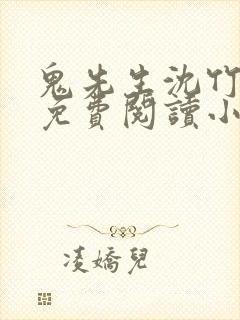 鬼先生沈竹
免費閱讀小
凌嬌兒